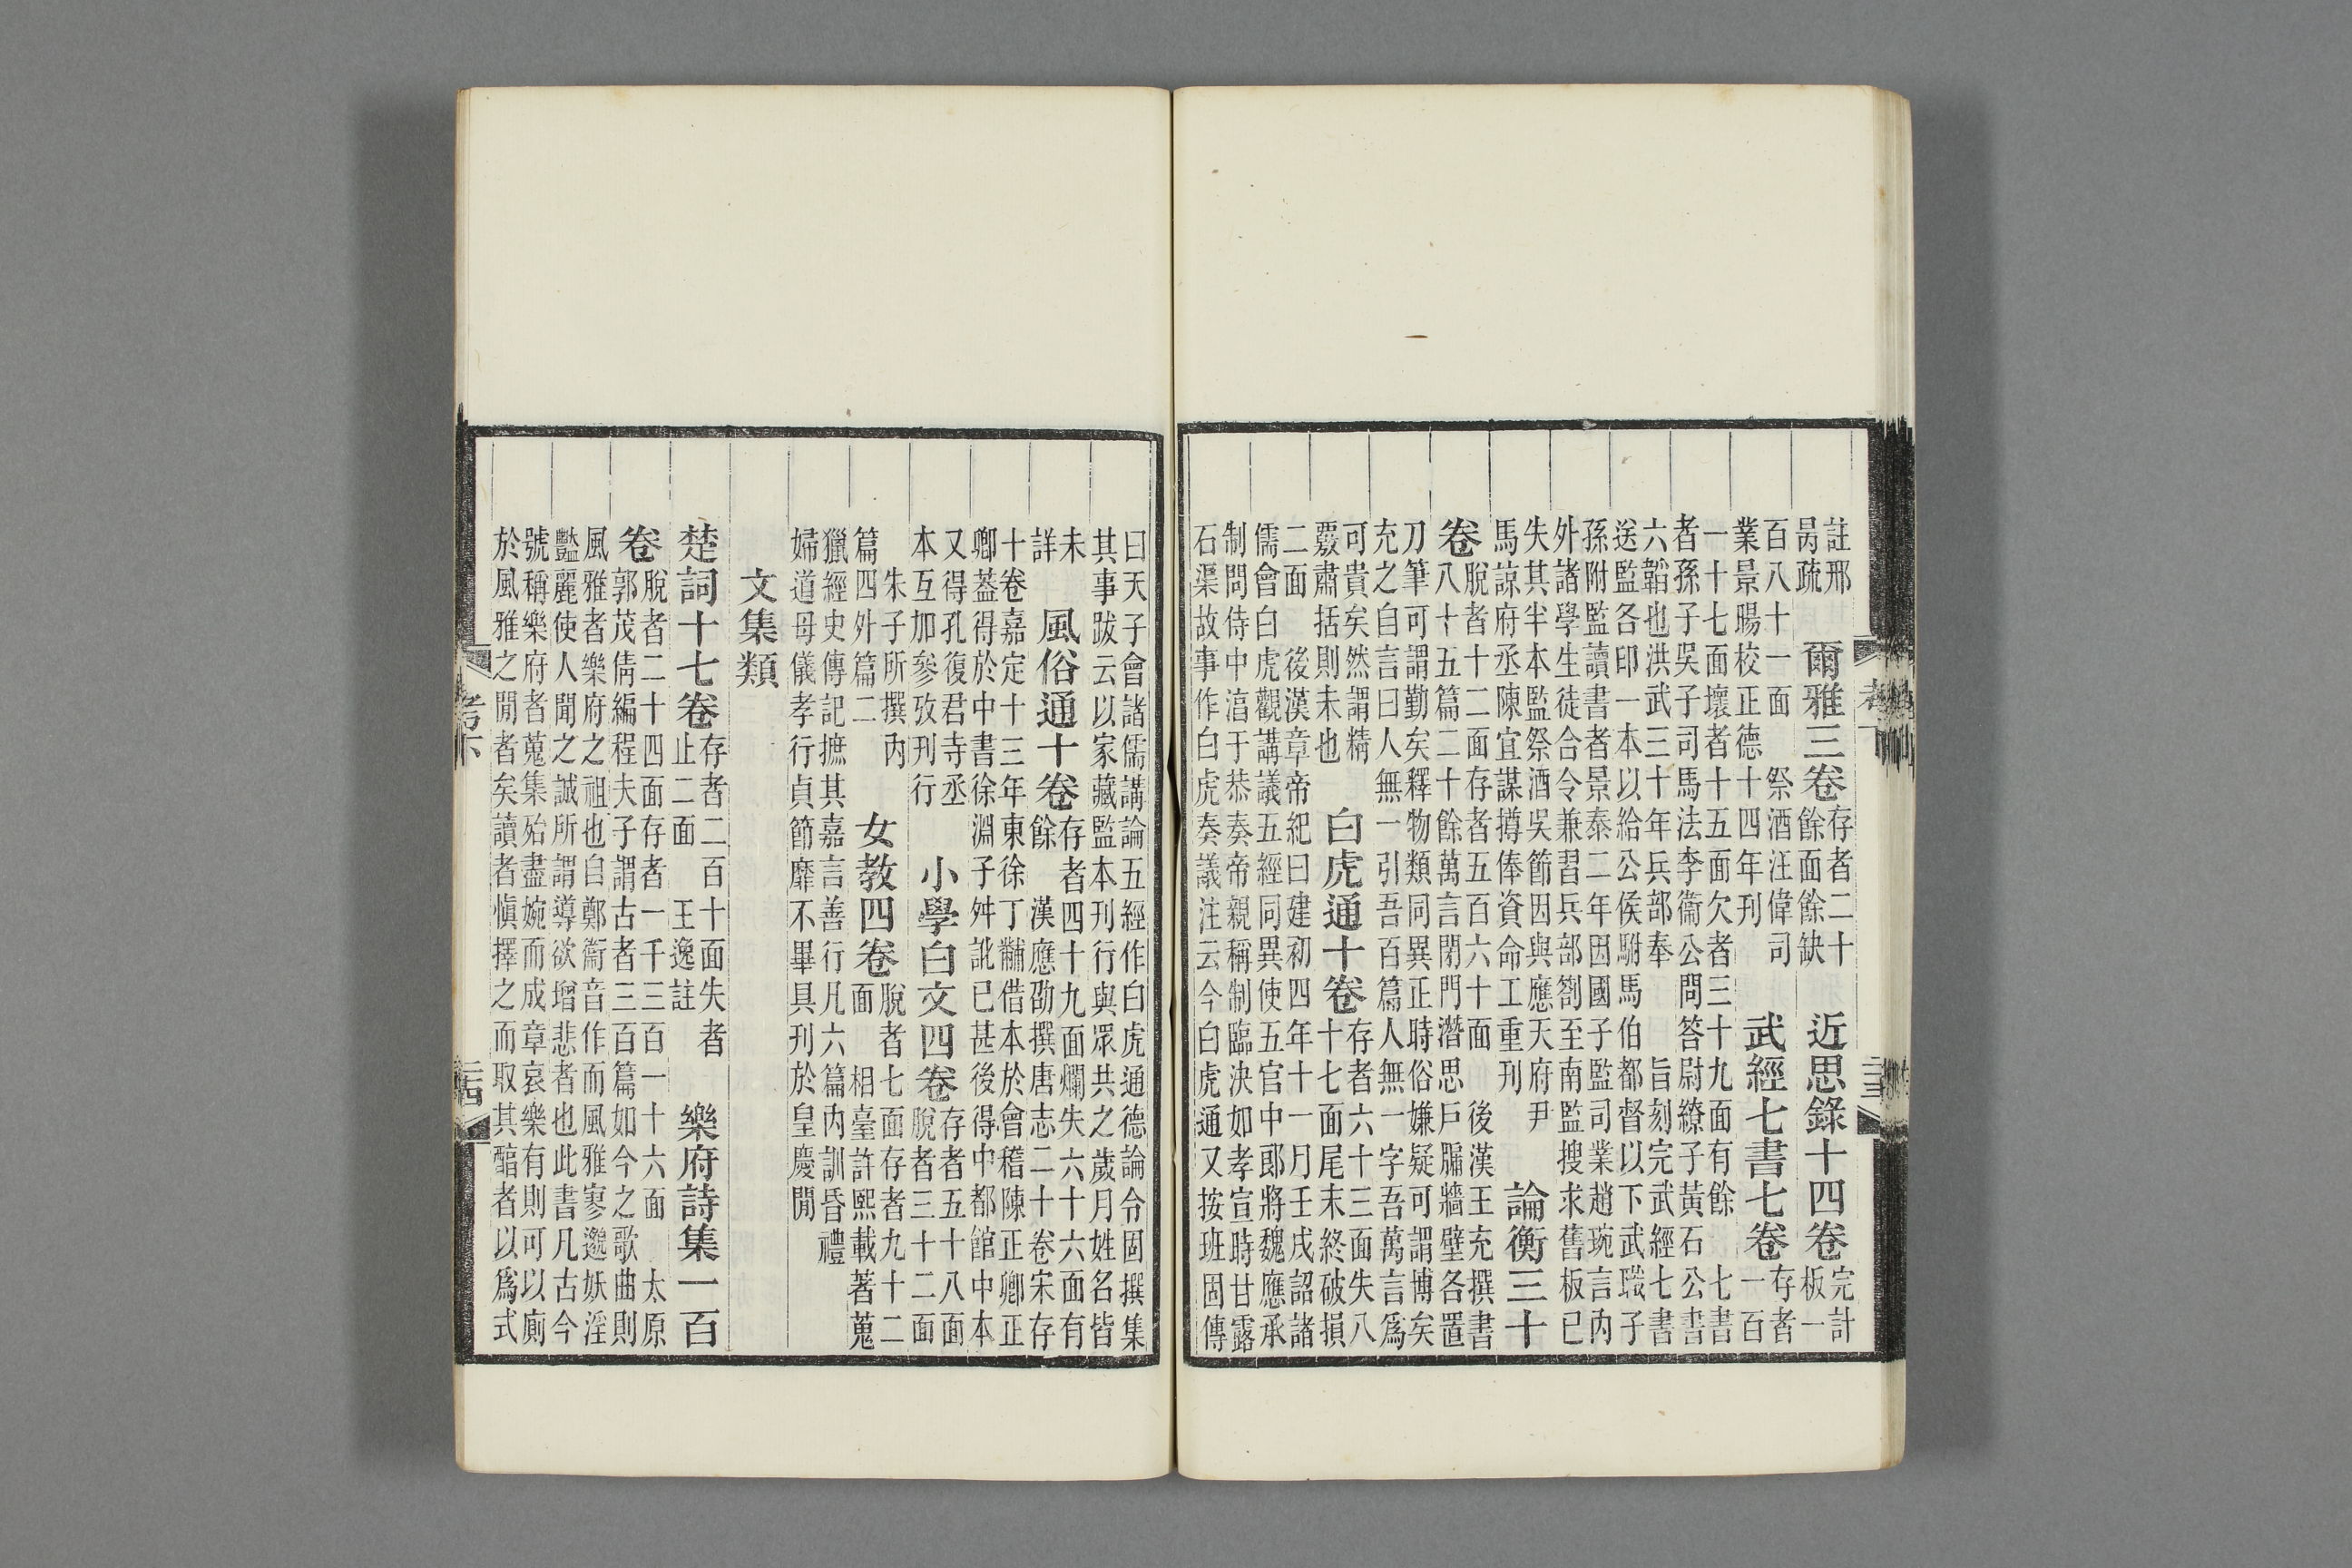 註邢
昺疏
爾雅三卷
存者二十
餘面餘缺
近思錄十四卷
完計
板一
百八十一面 祭酒汪偉司
業景暘校正德十四年刊
武經七書七卷
存者
一百
一十七面壞者十五面欠者三十九面有餘 七書
者孫子吳子司馬法李衞公問答尉繚子黃石公書
六韜也洪武三十年兵部奉 旨刻完武經七書
送監各印一本以給公侯駙馬伯都督以下武職子
孫附監讀書者景泰二年因國子監司業趙琬言內
外諸學生徒合令兼習兵部劄至南監搜求舊板已
失其半本監祭酒吳節因與應天府尹
馬諒府丞陳宜謀撙俸資命工重刊
論衡三十
卷
脫者十二面存者五百六十面 後漢王充撰書
八十五篇二十餘萬言閉門潛思戶牖牆壁各置
刀筆可謂勤矣釋物類同異正時俗嫌疑可謂博矣
充之自言曰人無一引吾百篇人無一字吾萬言爲
可貴矣然謂精
覈肅括則未也
白虎通十卷
存者六十三面失八
十七面尾末終破損
二面 後漢章帝紀曰建初四年十一月壬戌詔諸
儒會白虎觀講議五經同異使五官中郎將魏應承
制問侍中淳于恭奏帝親稱制臨決如孝宣時甘露
石渠故事作白虎奏議注云今白虎通又按班固傳
曰天子會諸儒講論五經作白虎通德論令固撰集
其事跋云以家藏監本刊行與眾共之歲月姓名皆
未
詳
風俗通十卷
存者四十九面爛失六十六面有
餘 漢應劭撰唐志二十卷宋存
十卷嘉定十三年東徐丁黼借本於會稽陳正卿正
卿葢得於中書徐淵子舛訛已甚後得中都館中本
又得孔復君寺丞
本互加參攷刊行
小學白文四卷
存者五十八面
脫者三十二面
朱子所撰內
篇四外篇二
女教四卷
脫者七面存者九十二
面 相臺許熙載著蒐
獵經史傳記摭其嘉言善行凡六篇內訓昏禮
婦道母儀孝行貞節靡不畢具刊於皇慶閒
文集類
楚詞十七卷
存者二百十面失者
止二面 王逸註
樂府詩集一百
卷
脫者二十四面存者一千三百一十六面 太原
郭茂倩編程夫子謂古者三百篇如今之歌曲則
風雅者樂府之祖也自鄭衞音作而風雅寥邈妖淫
豔麗使人聞之誠所謂導欲增悲者也此書凡古今
號稱樂府者蒐集殆盡婉而成章哀樂有則可以廁
於風雅之閒者矣讀者愼擇之而取其醇者以爲式
考下
二十四